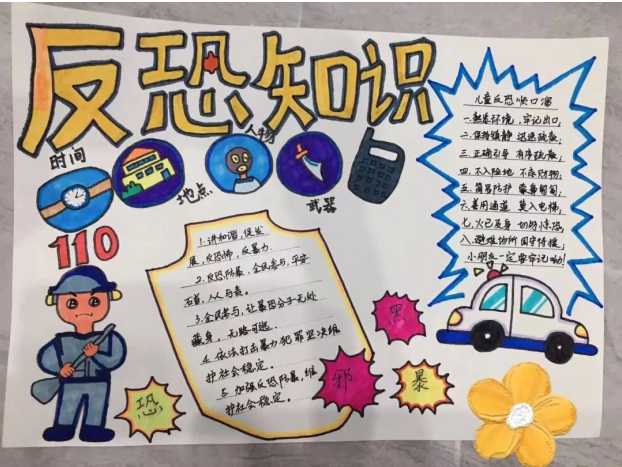 反恐知识
时间
地点
人物
武器
110
1.讲和谐，促发
展，反恐怖，反暴力
2.反恐防暴，全民参与，平安
石首，人人与责。
3.全民参与，让暴恐分子无处
藏身，无路可逃
4.依法打击暴力犯罪坚决维
护社会稳定。
5.加强反恐防暴，维
护社会稳定。
儿童反恐顺口溜
一.熟悉环境，牢记出口；
二.保持镇静 迅速疏散；
三.正确引导 有序疏散；
四.不入险地 不贪财物；
五.简易防护 蒙鼻匍匐；
六.善用通道 莫入电梯；
七.火已及身 切勿惊恐
八.避难场所 固守待援；
小朋友一定要牢记呦！
恐
邪
黑
暴